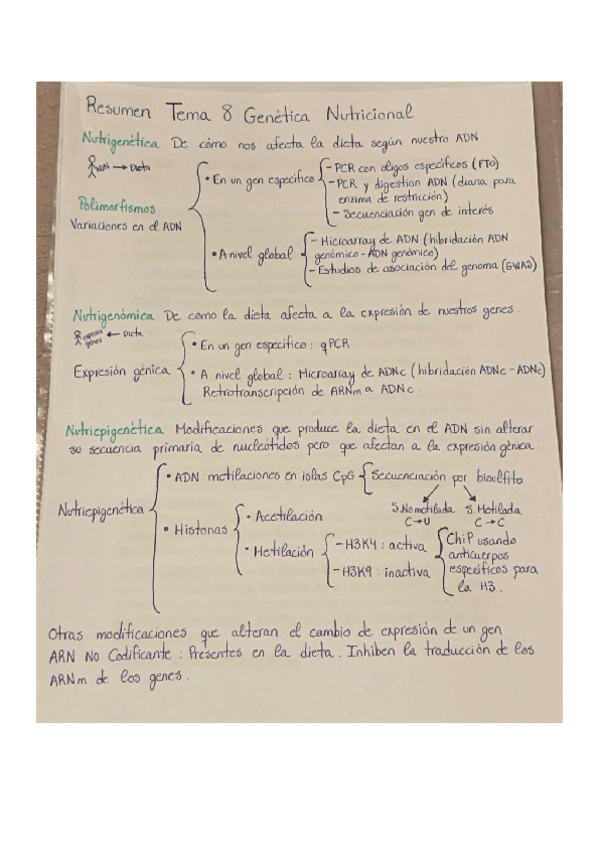 Resumen Tema 8 Genética Nutricional
Nutrigenética De cómo nos afecta la dieta según nuestro ADN.
ADN → Dieta
Polimorfismos
Variaciones en el ADN
• En un gen especifico
- PCR con oligos especificos (FTO)
- PCR y digestion ADN (diana para
enzima de restricción)
- Secuenciación gen de interés
• A nivel global
- Microarray de ADN (hibridación ADN
genómico - ADN genómico)
- Estudios de asociación del genoma (GWAS)
Nutrigenómica De como la dieta afecta a la expresión de nuestros genes.
expresa genes ← Dicta
Expresión génica
• En un gen especifico: qPCR
• A nivel global: Microarray de ADNc (hibridación ADNc - ADNc)
Retrotranscripción de ARNm a ADNc.
Nutriepigenética Modificaciones que produce la dieta en el ADN sin alterar
su secuencia primaria de nucleótidos pero que afectan a la expresión génica.
Nutriepigenética
• ADN: metilaciones en islas CpG
Secuenciación por bisulfito
S. No metilada S. Metilada
C→U C→C
• Histonas
• Acetilación
• Metilación
- H3K4: activa
- H3K9: inactiva
ChiP usando
anticuerpos
especificos para
la H3.
Otras modificaciones que alteran el cambio de expresión de un gen
ARN No Codificante: Presentes en la dieta. Inhiben la traducción de los
ARNm de los genes.